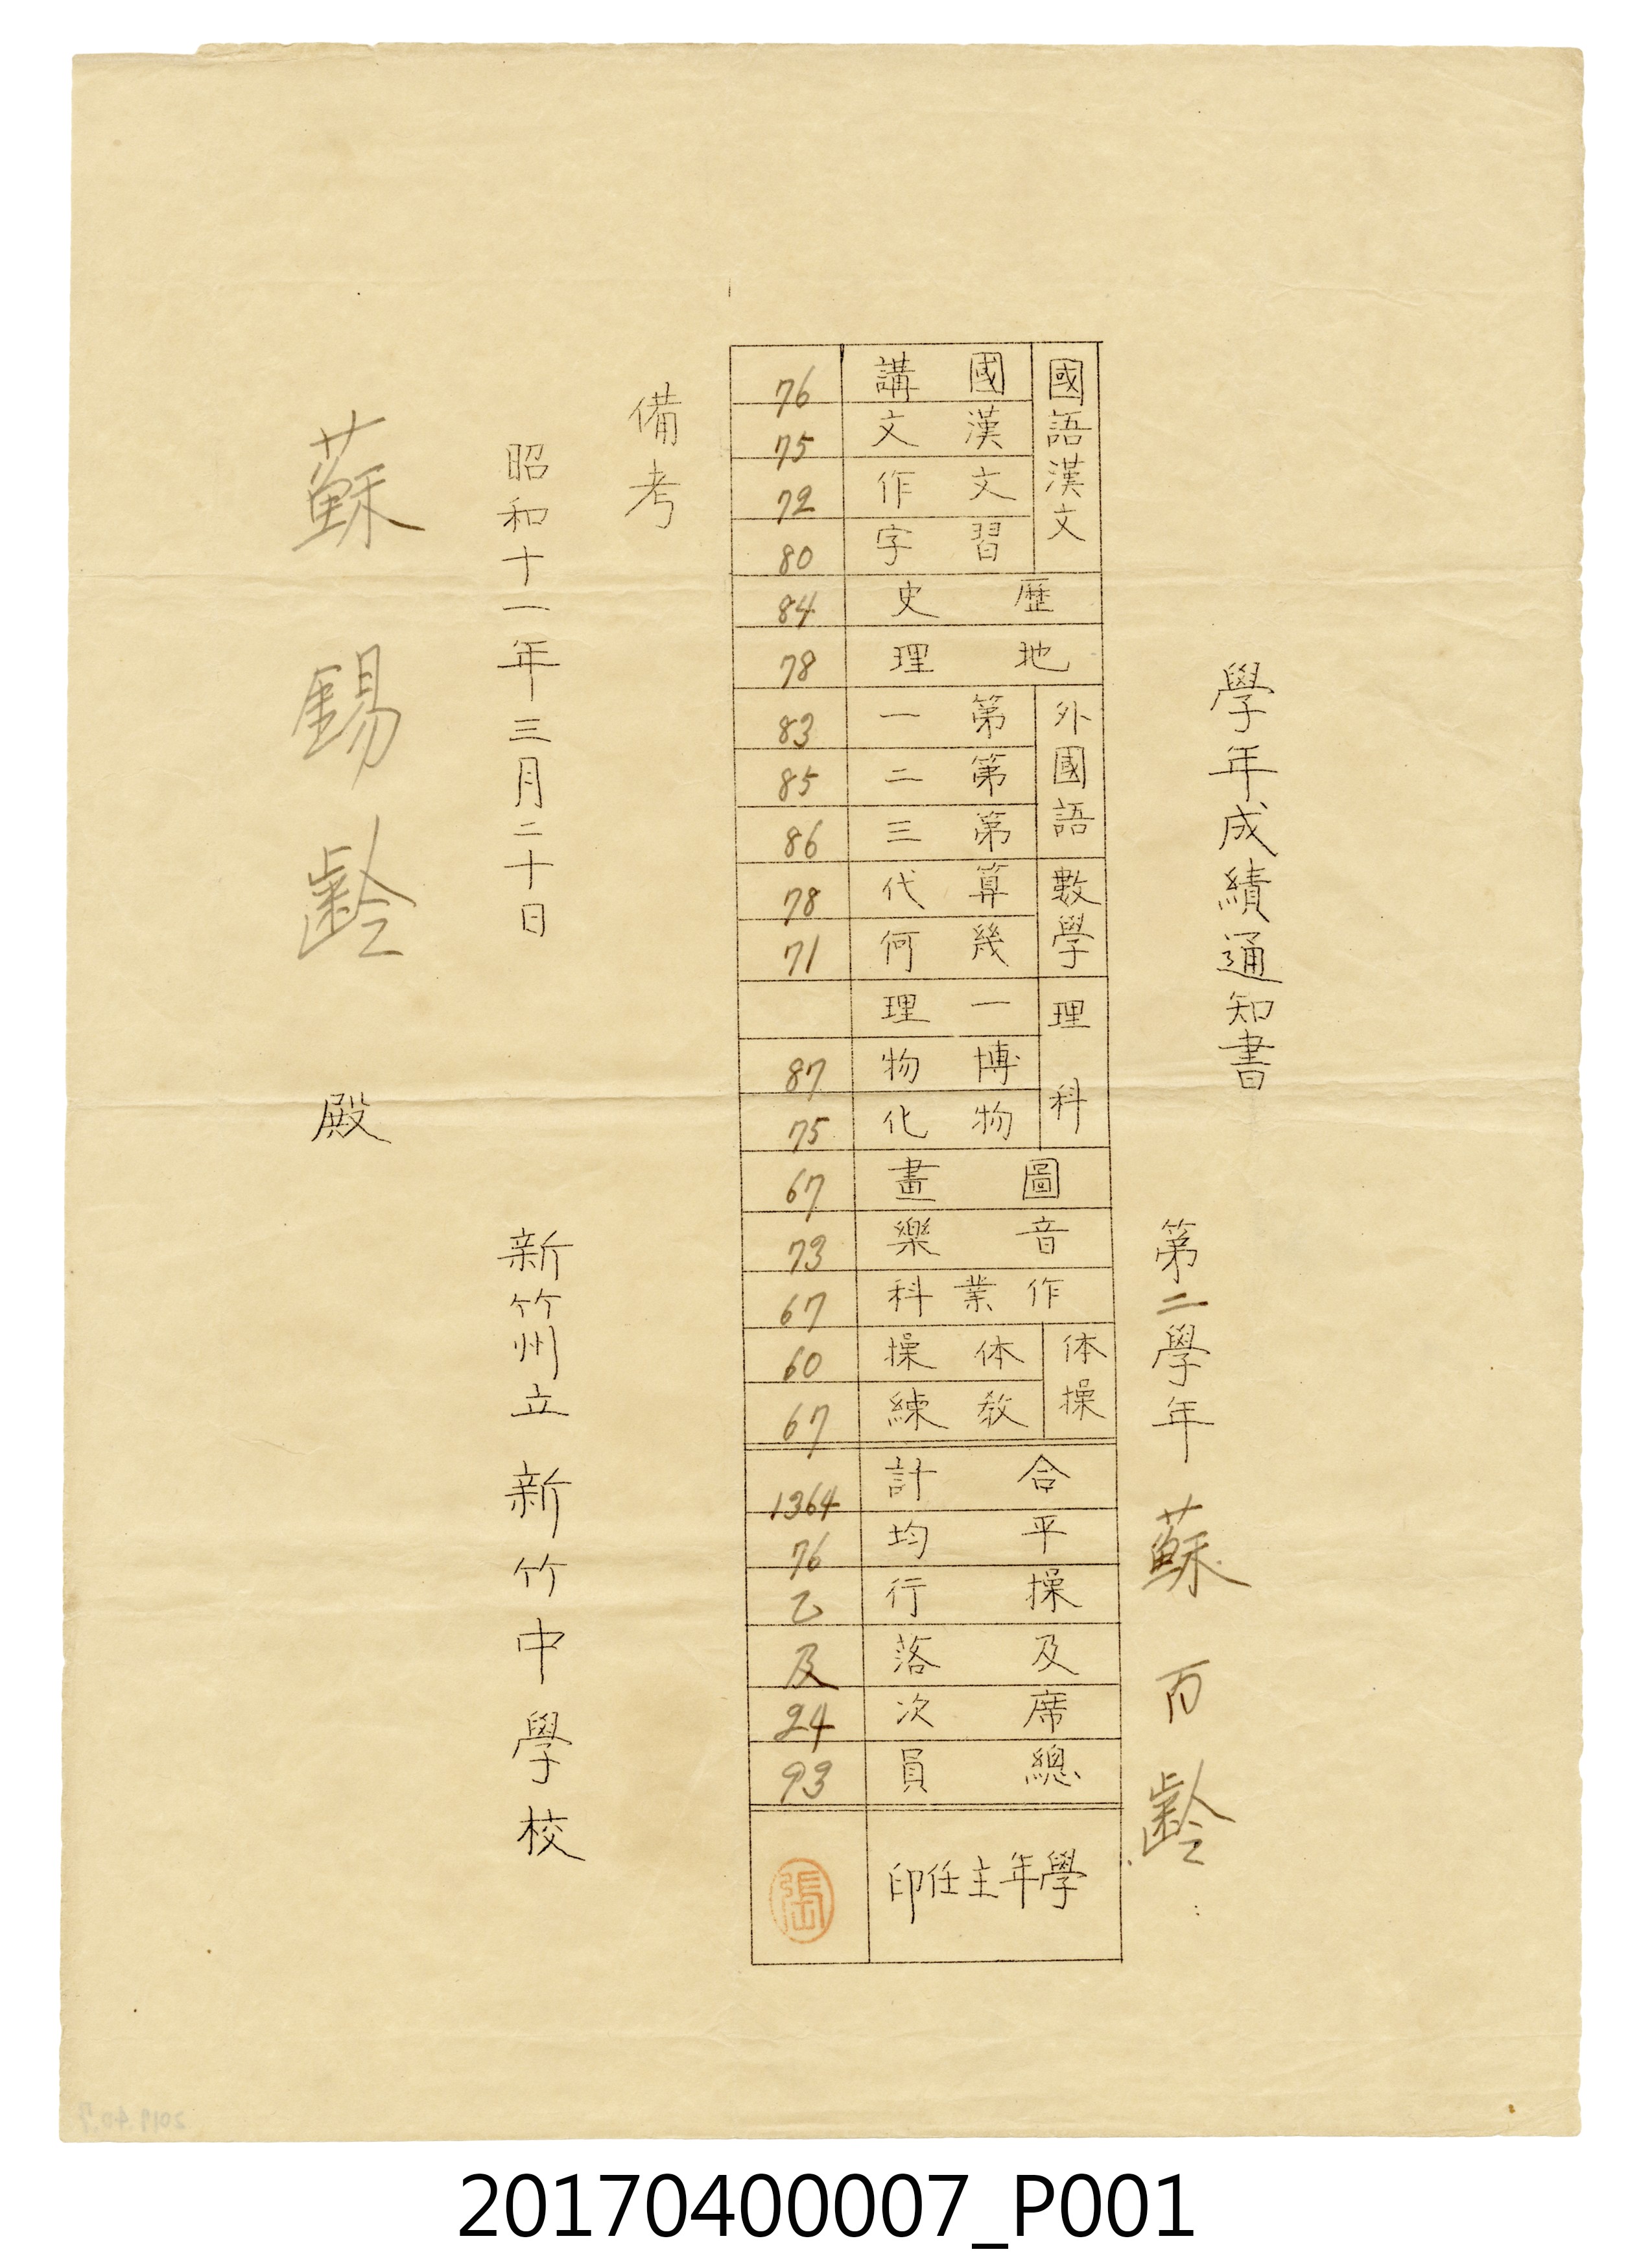 學年成績通知書
第二學年 蘇丙齡
國語漢文 國講 76
漢文 75
文作 72
習字 80
歷史 84
地理 78
外國語 第一 83
第二 85
第三 86
數學 算代 78
幾何 71
理科 一理
博物 87
物化 75
圖畫 67
音樂 73
作業科 67
体操 体操 60
教練 67
合計 1364
平均 76
操行 乙
及落 及
席次 24
總員 93
學年主任印 張
備考
昭和十一年三月二十日
新竹州立新竹中學校
蘇錫齡 殿
20170400007_P001